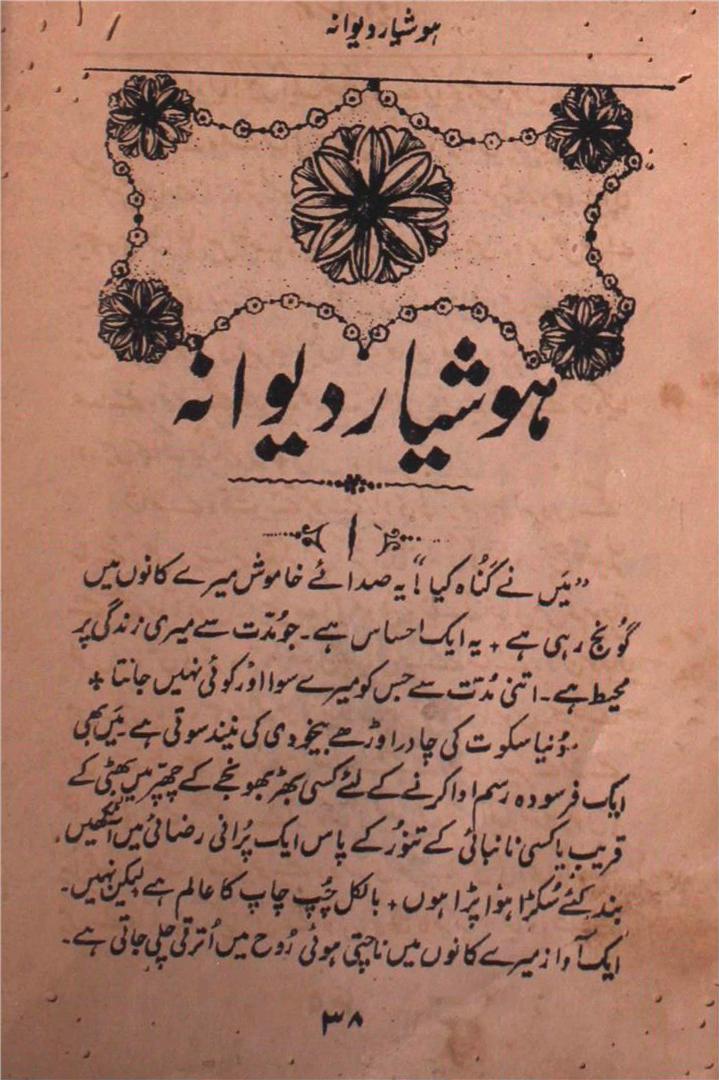 ہوشیار دیوانہ
ہوشیار دیوانہ
۱
”مَیں نے گُناہ کیا“! یہ صدائے خاموش میرے کانوں میں
گونج رہی ہے ٭ یہ ایک احساس ہے۔ جو مُدّت سے میری زندگی پر
محیط ہے۔ اتنی مُدّت سے جس کو میرے سوا اَور کوئی نہیں جانتا ٭
دُنیا سکوت کی چادر اوڑھے بیخودی کی نیند سوتی ہے۔ مَیں بھی
ایک فرسودہ رسم ادا کرنے کے لئے کسی بھڑبھونجے کے چھپّر میں بھٹی کے
قریب یا کسی نانبائی کے تنوُر کے پاس ایک پُرانی رضائی میں آنکھیں
بند کئے سُکڑا ہوٴا پڑا ہوں ٭ بالکل چُپ چاپ کا عالم ہے لیکن نہیں۔
ایک آواز میرے کانوں میں ناچتی ہوئی رُوح میں اُترتی چلی جاتی ہے۔
۳۸